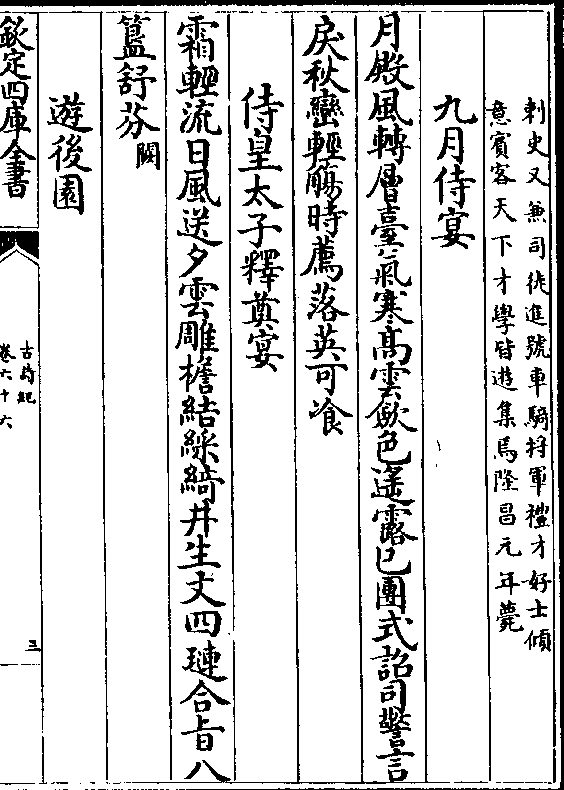 刺史又兼司徒進號車騎將軍禮才好士傾
意賓客天下才學皆遊集焉隆昌元年薨
九月侍宴
月殿風轉層臺氣寒高雲斂色遙露已團式詔司警言
戾秋巒輕觴時薦落英可飡
侍皇太子釋奠宴
霜輕流日風送夕雲雕檐結綵綺井生文四璉合旨八
簋舒芬闕
遊後園
欽定四庫全書
古詩紀
卷六十六
三